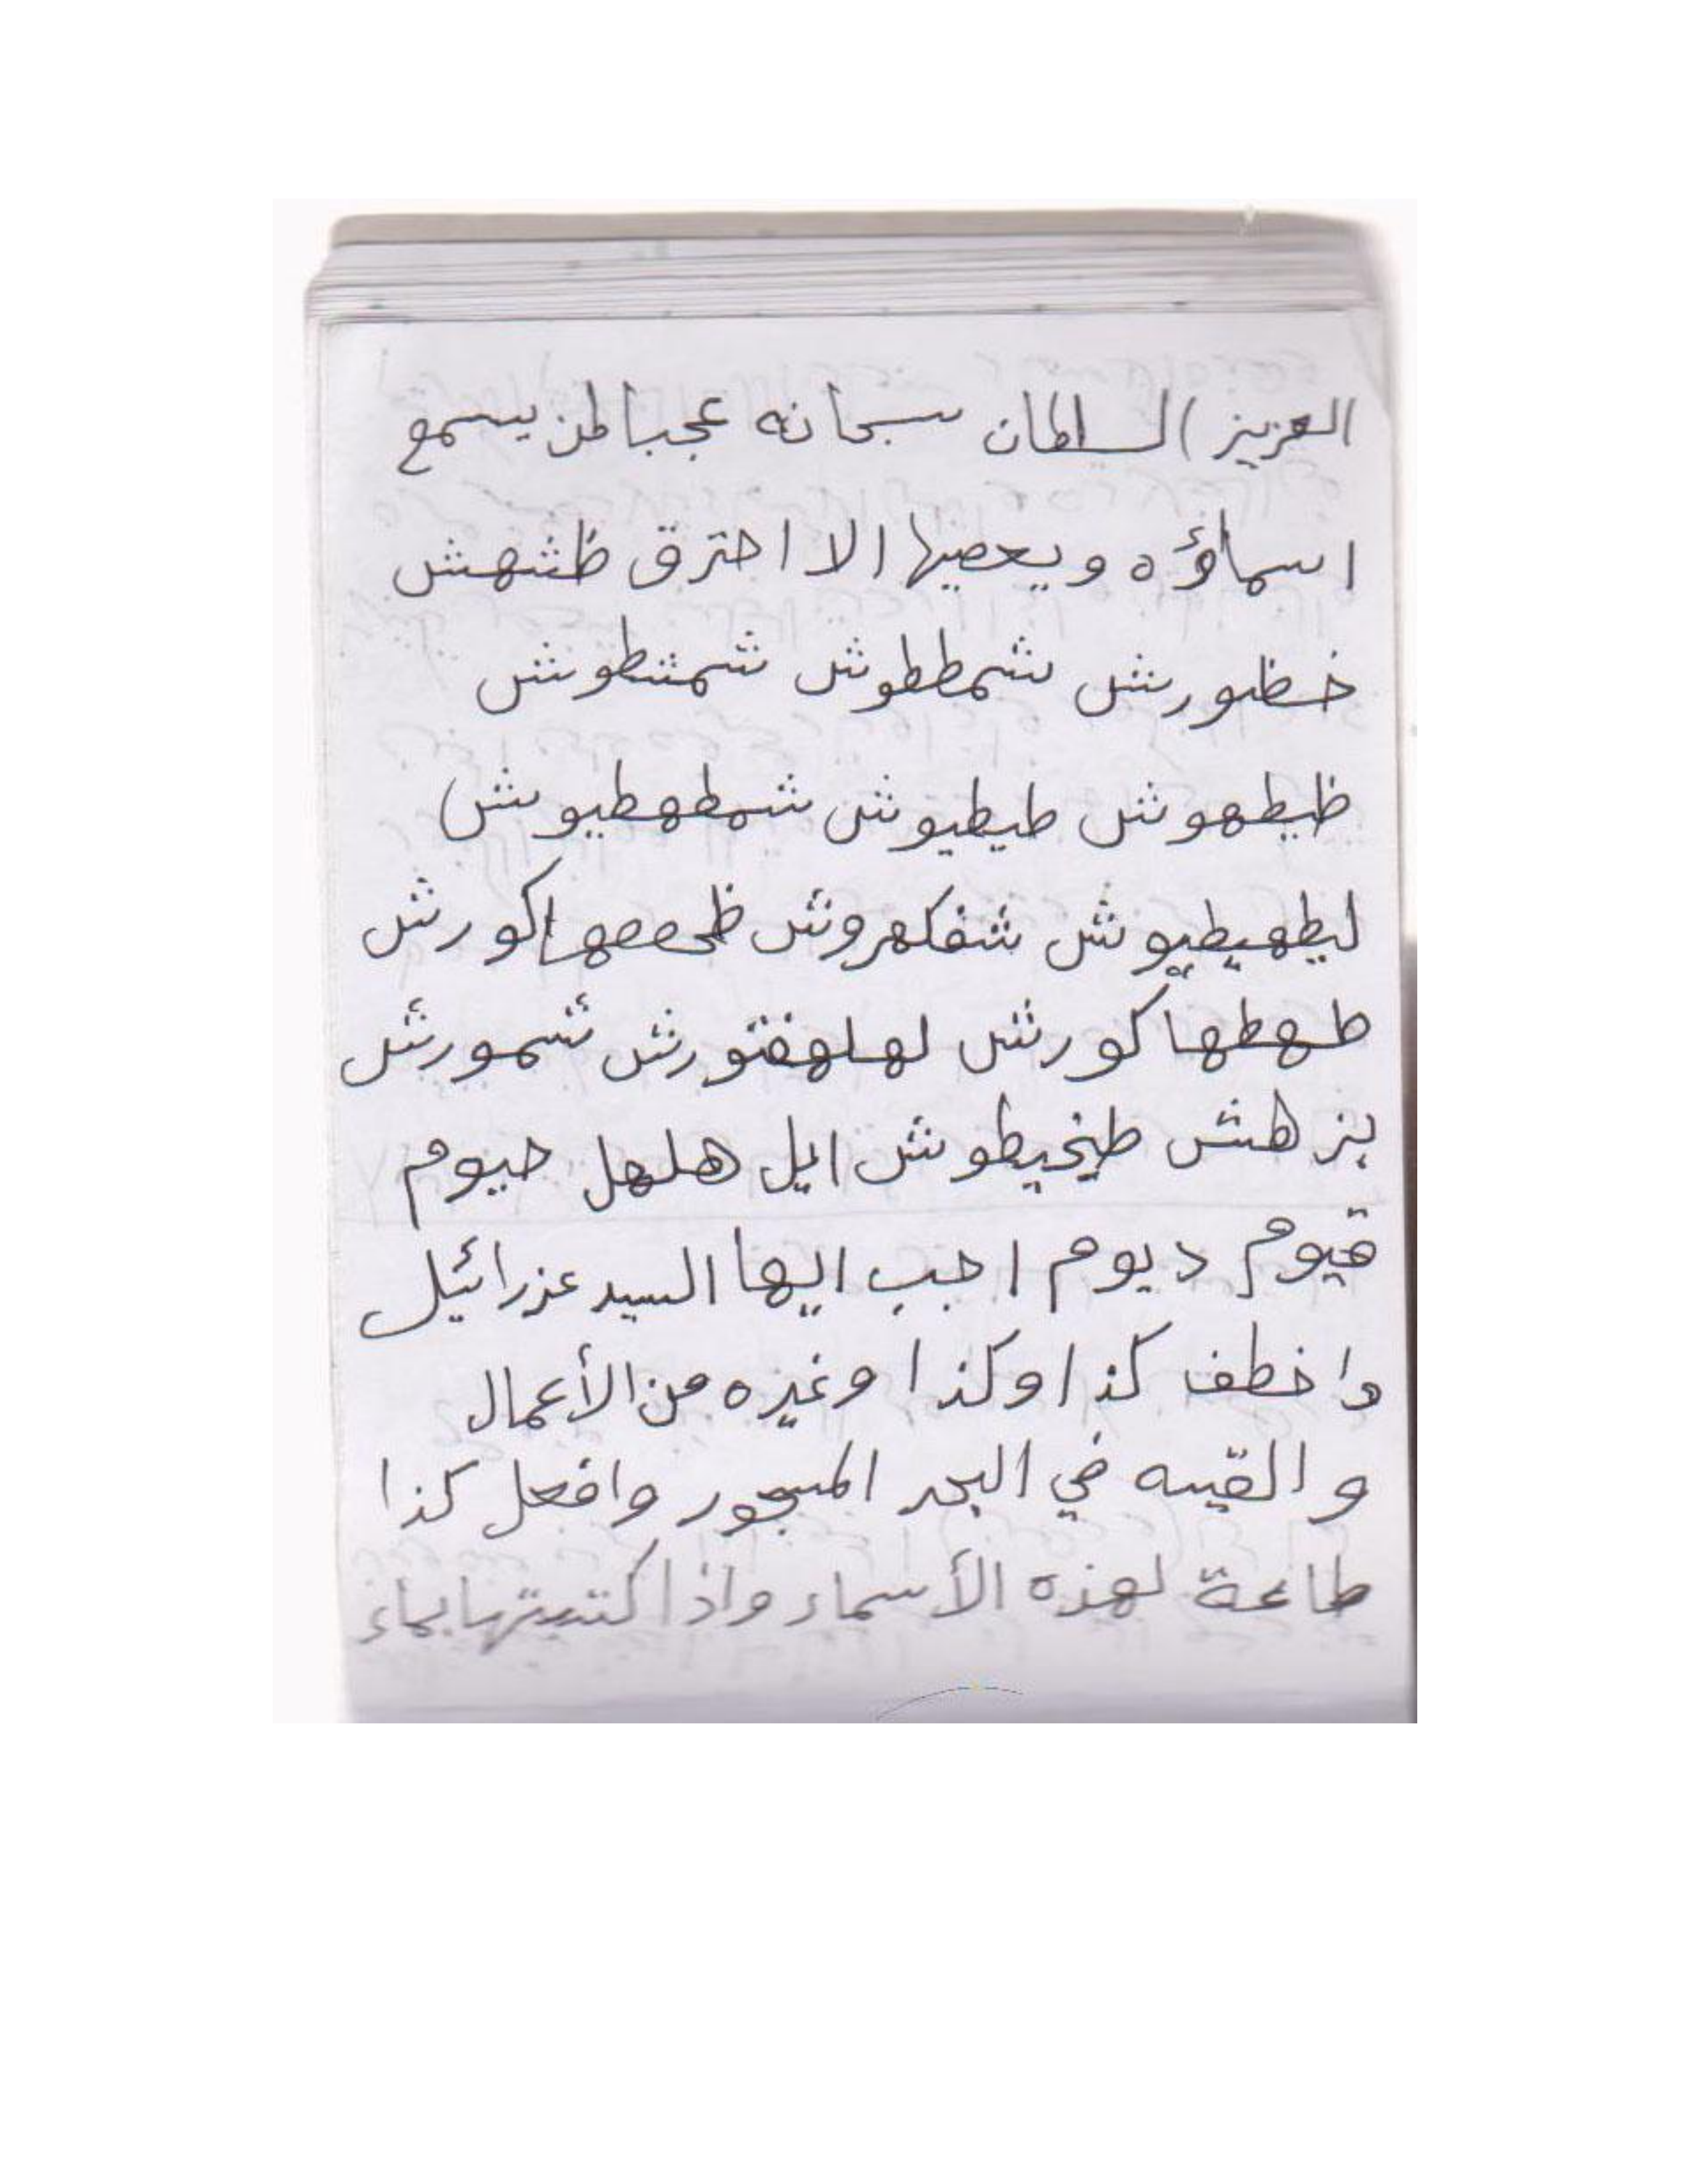 العزيز السلطان سبحانه عجبا لمن يسمع
اسماؤه ويعصيها الا احترق ظشهش
خظورش شمططوش شمشطوش
ظيطهوش طيطيوش شمطهطيوش
ليطهيطيوش شفكهروش اكورش
طهطهاكورش لهلهفتورش شمورش
بزهش طيخيطوش ايل هلهل حيوم
قيوم ديوم اجب ايها السيد عزرائيل
واخطف كذا وكذا وغيره من الأعمال
والقيه في البحر المسجور وافعل كذا
طاعة لهذه الأسماء واذا كتبتها بماء